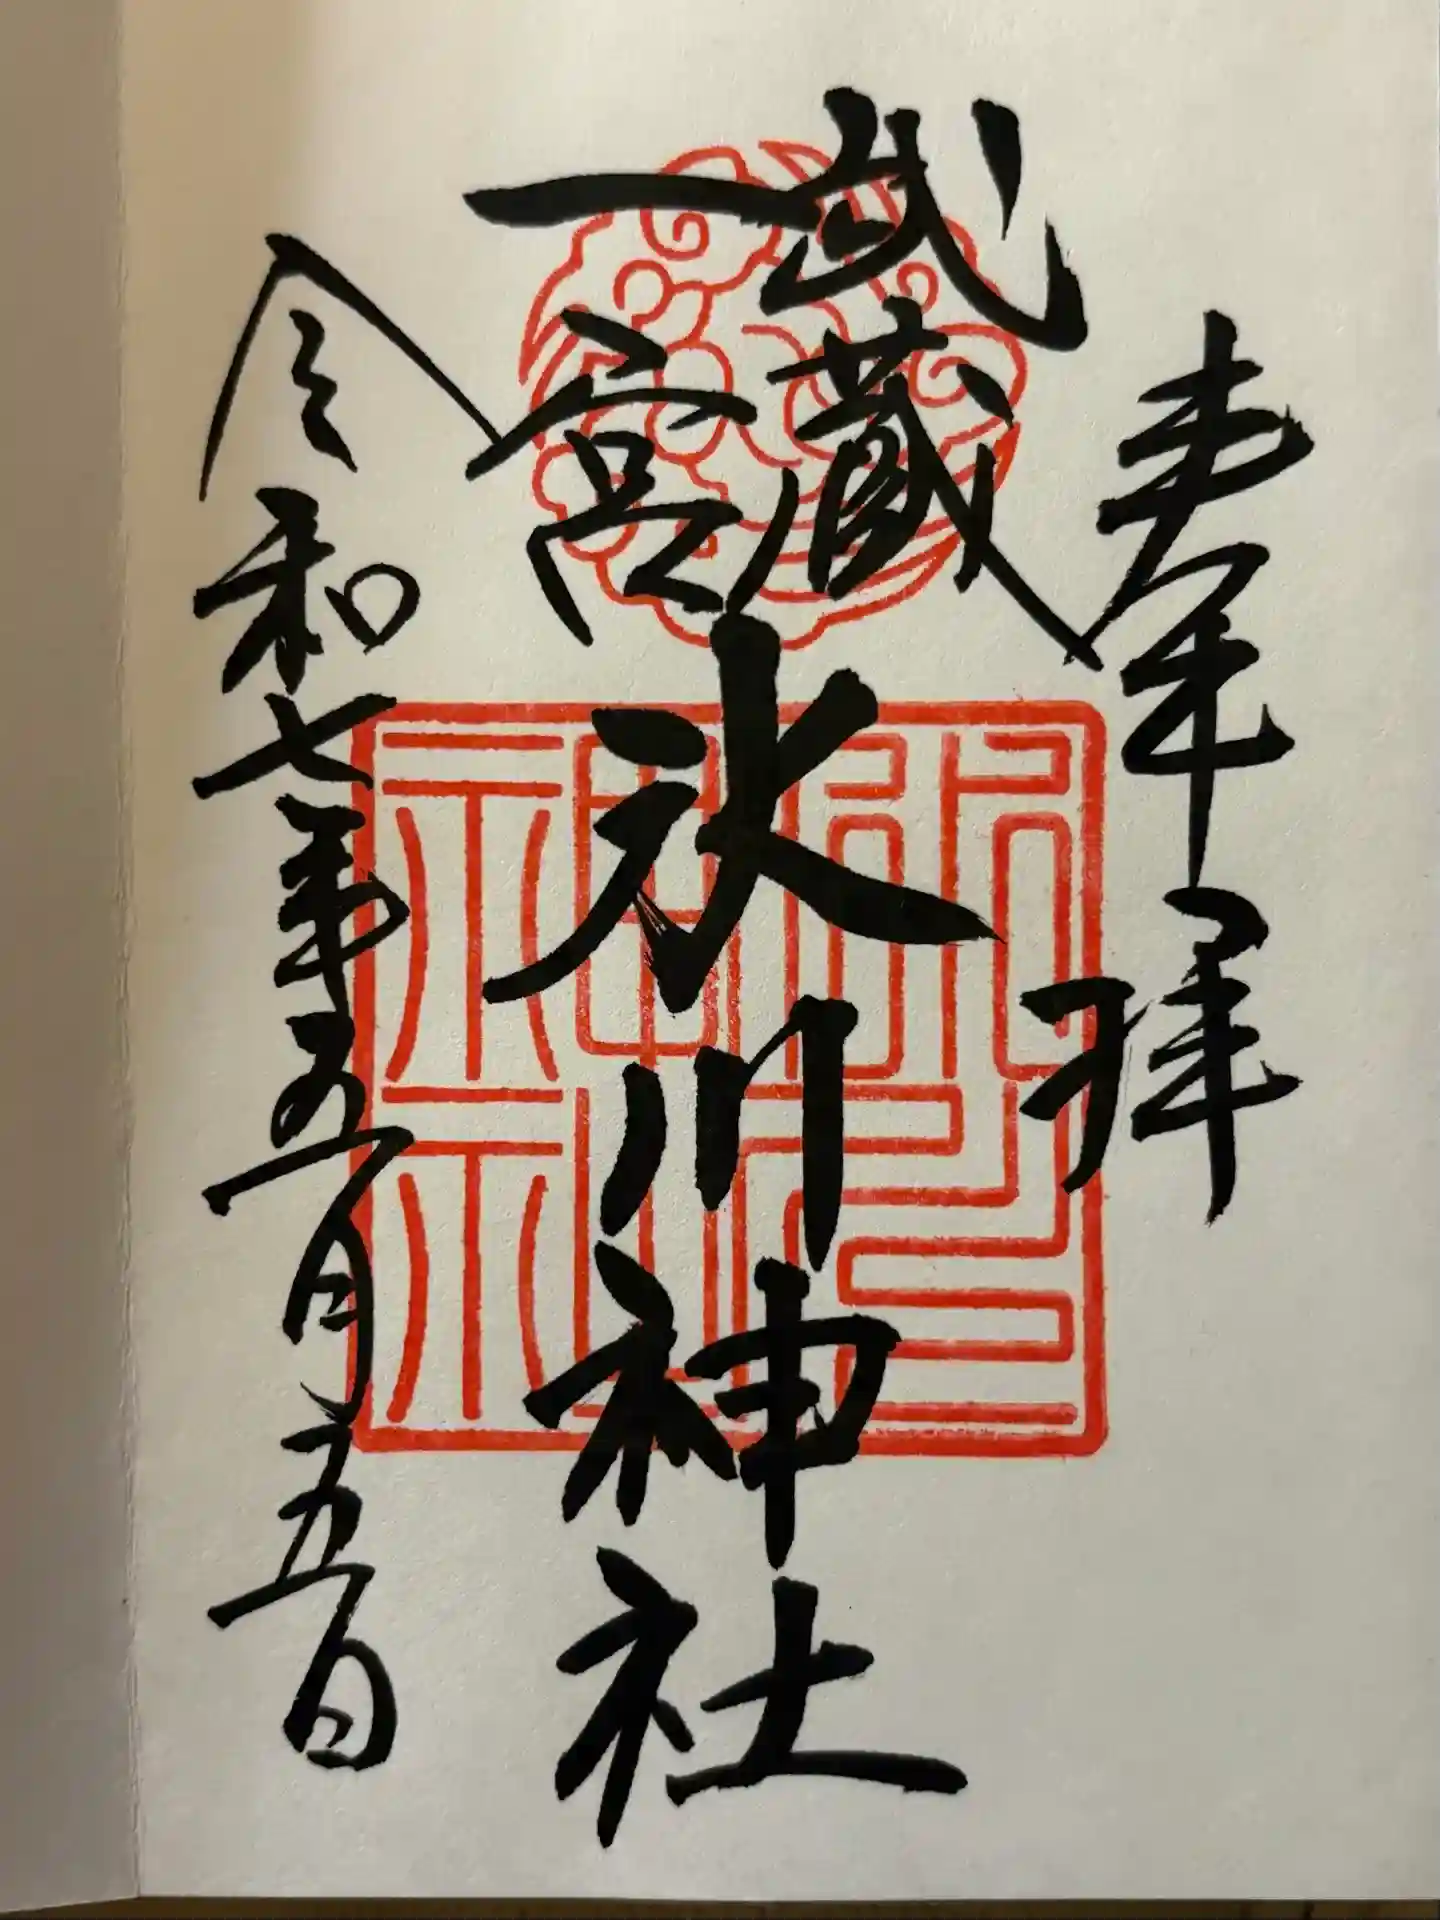 奉拝
武蔵
一宮
氷川神社
令和七年五月五日
氷川神社